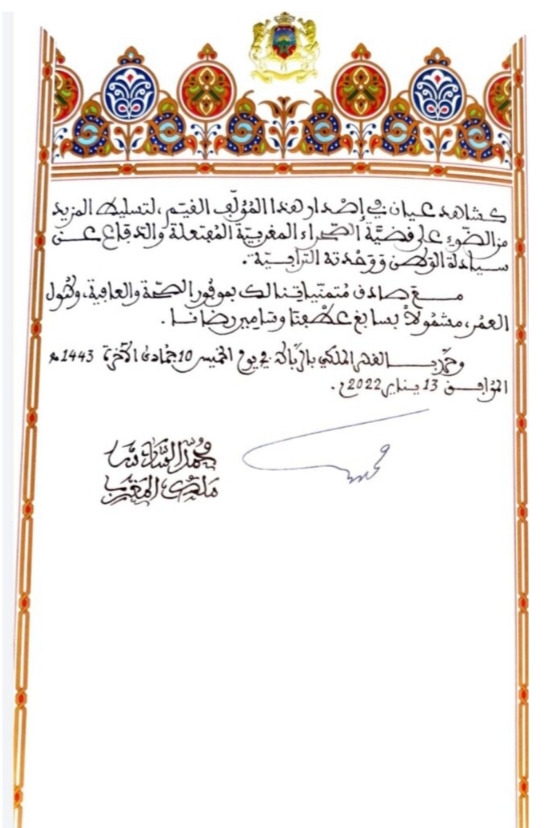 كشاهد عيان في إصدار هذا المُؤلَّف القيّم، لتسليط المزيد
من الضّوء على قضيّة الصّحراء المغربيّة المُفتعلة والدّفاع عن
سيادة الوطن ووحدته الترابيّة.
مع صادق مُتمنّياتنا لك بموفُور الصّحّة والعافية، وطُول
العمُر، مشمُولاً بسابغ عطفنا وشامِل رضانا.
وحُرّر بالقصر الملكي بالرّباط في يوم الخميس 10 جُمادى الآخرة 1443 هـ
المُوافق 13 يناير 2022م.
محمد السادس
ملك المغرب